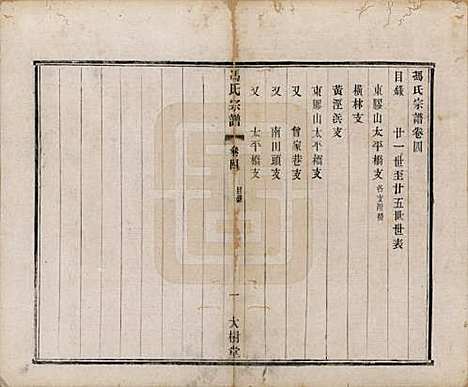 馮氏宗譜卷四
目錄　廿一世至廿五世世表
東膠山太平橋支各支附錄
橫林支
黃涇浜支
東膠山太平橋支
又　曾家巷支
又　南田頭支
又　太平橋支
馮氏宗譜　卷四　目錄　一　大樹堂